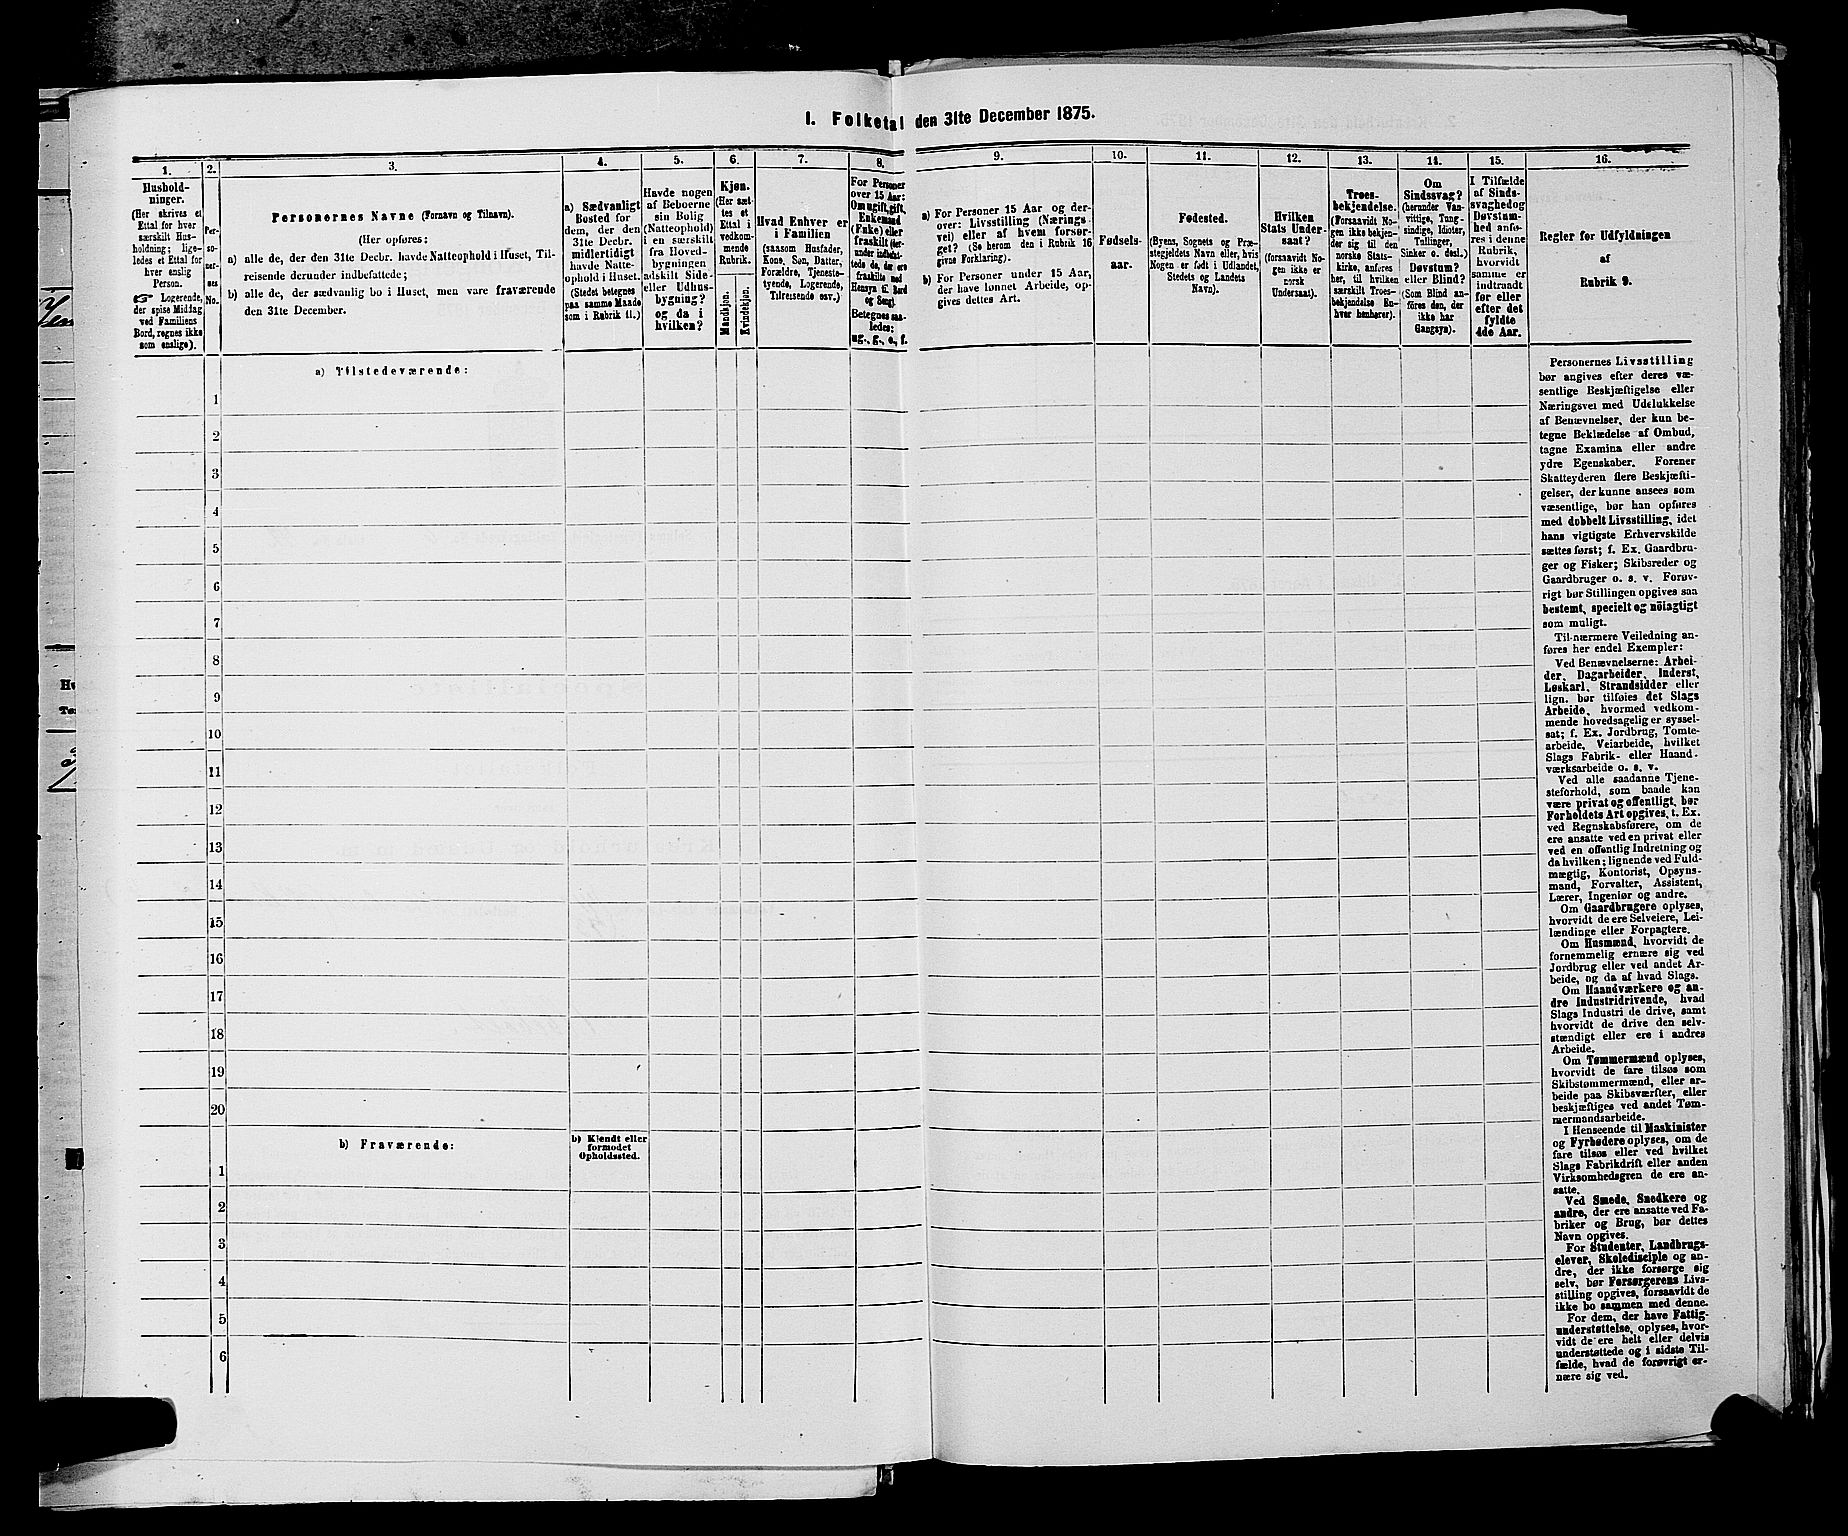 I. Folketal den 31te December 1875.
1.
2.
3.
4.
5.
6.
7.
8.
9.
10.
11.
12.
13.
14.
15.
16.
Hushold-
ninger.
(Her skrives et
Ettal for hver
særskilt Hus-
holdning; lige-
ledes et Ettal for
hver enslig
Person.
☞ Logerende,
der spise Middag
ved Familiens
Bord, regnes ikke
som enslige).
Per-
so-
ner-
nes
No.
Personernes Navne (Fornavn og Tilnavn).
(Her opføres:
a) alle de, der den 31te Decbr. havde Natteophold i Huset, Til-
reisende derunder indbefattede;
b) alle de, der sædvanlig bo i Huset, men vare fraværende
den 31te December.
a) Sædvanligt
Bosted for
dem, der den
31te Decbr.
midlertidigt
havde Natte-
ophold i Huset.
(Stedet betegnes
paa samme Maade
som i Rubrik 11.)
Havde nogen
af Beboerne
sin Bolig
(Natteophold)
i en særskilt
fra Hoved-
bygningen
adskilt Side-
eller Udhus-
bygning?
og da i
hvilken?
Kjøn.
(Her sæt-
tes et
Ettal i
vedkom-
mende
Rubrik.
Mandkjøn.
Kvindekjøn.
Hvad Enhver er
i Familien
(saasom Husfader,
Kone, Søn, Datter,
Forældre, Tjeneste-
tyende, Logerende,
Tilreisende osv.)
For Personer
over 15 Aar:
Om ugift, gift,
Enkemand
(Enke) eller
fraskilt (der-
under indbefat-
tede de, der ere
fraskilte med
Hensyn til Bord
og Seng).
Betegnes saa-
ledes:
ug., g., e., f.
a) For Personer 15 Aar og der-
over: Livsstilling (Nærings-
vei) eller af hvem forsør-
get? (Se herom den i Rubrik 16
givne Forklaring).
b) For Personer under 15 Aar,
der have lønnet Arbeide, op-
gives dettes Art.
Fødsels-
aar.
Fødested.
(Byens, Sognets og Præ-
stegjeldets Navn eller, hvis
Nogen er født i Udlandet,
Stedets og Landets
Navn).
Hvilken
Stats Under-
saat?
(forsaavidt No-
gen ikke er
norsk
Undersaat).
Troes-
bekjendelse.
(Forsaavidt No-
gen ikke bekjen-
der sig til den
norske Stats-
kirke, anføres
her, til hvilken
særskilt Troes-
bekjendelse En-
hver henhører).
Om
Sindssvag?
(herunder Van-
vittige, Tung-
sindige, Idioter,
Tullinger,
Sinker o. desl.)
Døvstum?
eller Blind?
(Som Blind an-
føres den, der
ikke har
Gangsyn).
I Tilfælde
af Sinds-
svaghed og
Døvstum-
hed anfø-
res i denne
Rubrik,
hvorvidt
samme er
indtraadt
før eller
efter det
fyldte
4de Aar.
Regler for Udfyldningen
af
Rubrik 9.
a) Tilstedeværende:
1
2
3
4
5
6
7
8
9
10
11
12
13
14
15
16
17
18
19
20
b) Fraværende:
b) Kjendt eller
formodet
Opholdssted.
1
2
3
4
5
6
Personernes Livsstilling
bør angives efter deres væ-
sentlige Beskjæftigelse eller
Næringsvei med Udelukkelse
af Benævnelser, der kun be-
tegne Beklædelse af Ombud,
tagne Examina eller andre
ydre Egenskaber. Forener
Skatteyderen flere Beskjæfti-
gelser, der kunne ansees som
væsentlige, bør han opføres
med dobbelt Livsstilling, idet
hans vigtigste Erhvervskilde
sættes først; f. Ex. Gaardbru-
ger og Fisker; Skibsreder og
Gaardbruger o. s. v. Forøv-
rigt bør Stillingen opgives saa
bestemt, specielt og nöiagtigt
som muligt.
Til nærmere Veiledning an-
føres her endel Exempler:
Ved Benævnelserne: Arbei-
der, Dagarbeider, Inderst,
Løskarl, Strandsidder eller
lign. bør tilføies det Slags
Arbeide, hvormed vedkom-
mende hovedsagelig er syssel-
sat; f. Ex. Jordbrug, Tomte-
arbeide, Veiarbeide, hvilket
Slags Fabrik- eller Haand-
værksarbeide o. s. v.
Ved alle saadanne Tjene-
steforhold, som baade kan
være privat og offentligt, bør
Forholdets Art opgives, t. Ex.
ved Regnskabsførere, om de
ere ansatte ved en privat eller
ved en offentlig Indretning og
da hvilken; lignende ved Fuld-
mægtig, Kontorist, Opsyns-
mand, Forvalter, Assistent,
Lærer, Ingeniør og andre.
Om Gaardbrugere oplyses,
hvorvidt de ere Selveiere, Lei-
lændinge eller Forpagtere.
Om Husmænd, hvorvidt de
fornemmelig ernære sig ved
Jordbrug eller ved andet Ar-
beide, og da af hvad Slags.
Om Haandværkere og an-
dre Industridrivende, hvad
Slags Industri de drive, samt
hvorvidt de drive den selv-
stændigt eller ere i andres
Arbeide.
Om Tømmermænd oplyses,
hvorvidt de fare tilsøs som
Skibstømmermænd, eller ar-
beide paa Skibsværfter, eller
beskjæftiges ved andet Tøm-
mermandsarbeide.
I Henseende til Maskinister
og Fyrbødere oplyses, om de
fare tilsøs eller ved hvilket
Slags Fabrikdrift eller anden
Virksomhedsgren de ere an-
satte.
Ved Smede, Snedkere og
andre, der ere ansatte ved Fa-
briker og Brug, bør dettes
Navn opgives.
For Studenter, Landbrugs-
elever, Skoledisciple og an-
dre, der ikke forsørge sig
selv, bør Forsørgerens Livs-
stilling opgives, forsaavidt de
ikke bo sammen med denne.
For dem, der have Fattig-
understøttelse, oplyses, hvor-
vidt de ere helt eller delvis
understøttede og i sidste Til-
fælde, hvad de forøvrigt er-
nære sig ved.